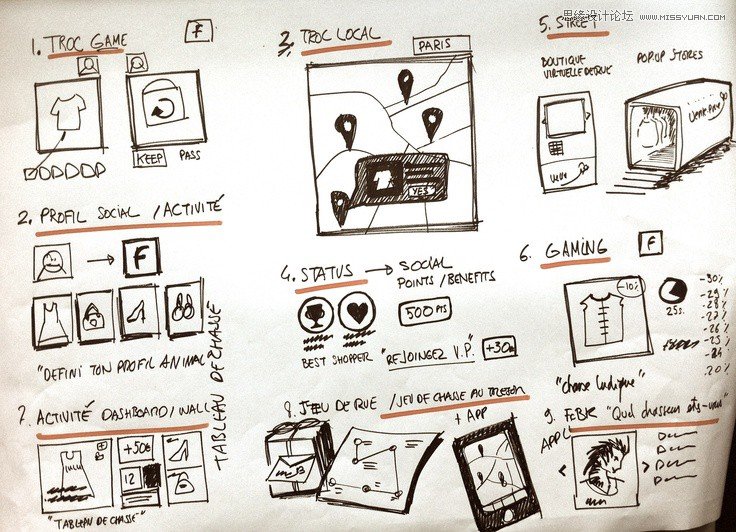 思缘设计论坛 WWW.MISSYUAN.COM
1. TROC GAME
F
KEEP PASS
2. PROFIL SOCIAL / ACTIVITÉ
F
"DEFINI TON PROFIL ANIMAL"
TABLEAU DE CHASSE
7. ACTIVITÉ DASHBOARD/WALL
+50
12
"TABLEAU DE CHASSE"
3. TROC LOCAL
PARIS
YES
4. STATUS → SOCIAL
POINTS / BENEFITS
500 PTS
BEST SHOPPER
"REJOINGEZ V.P."
+30
8. JEU DE RUE / JEU DE CHASSE AU TRESOR
+ APP
5. STREET
BOUTIQUE
VIRTUELLE DE RUE
POP UP STORES
6. GAMING
F
-10%
25s.
-30%
-29%
-28%
-27%
-26%
-25%
-24
-20%
"chasse ludique"
9. FcBk "Quel chasseur êts-vous"
APPLI